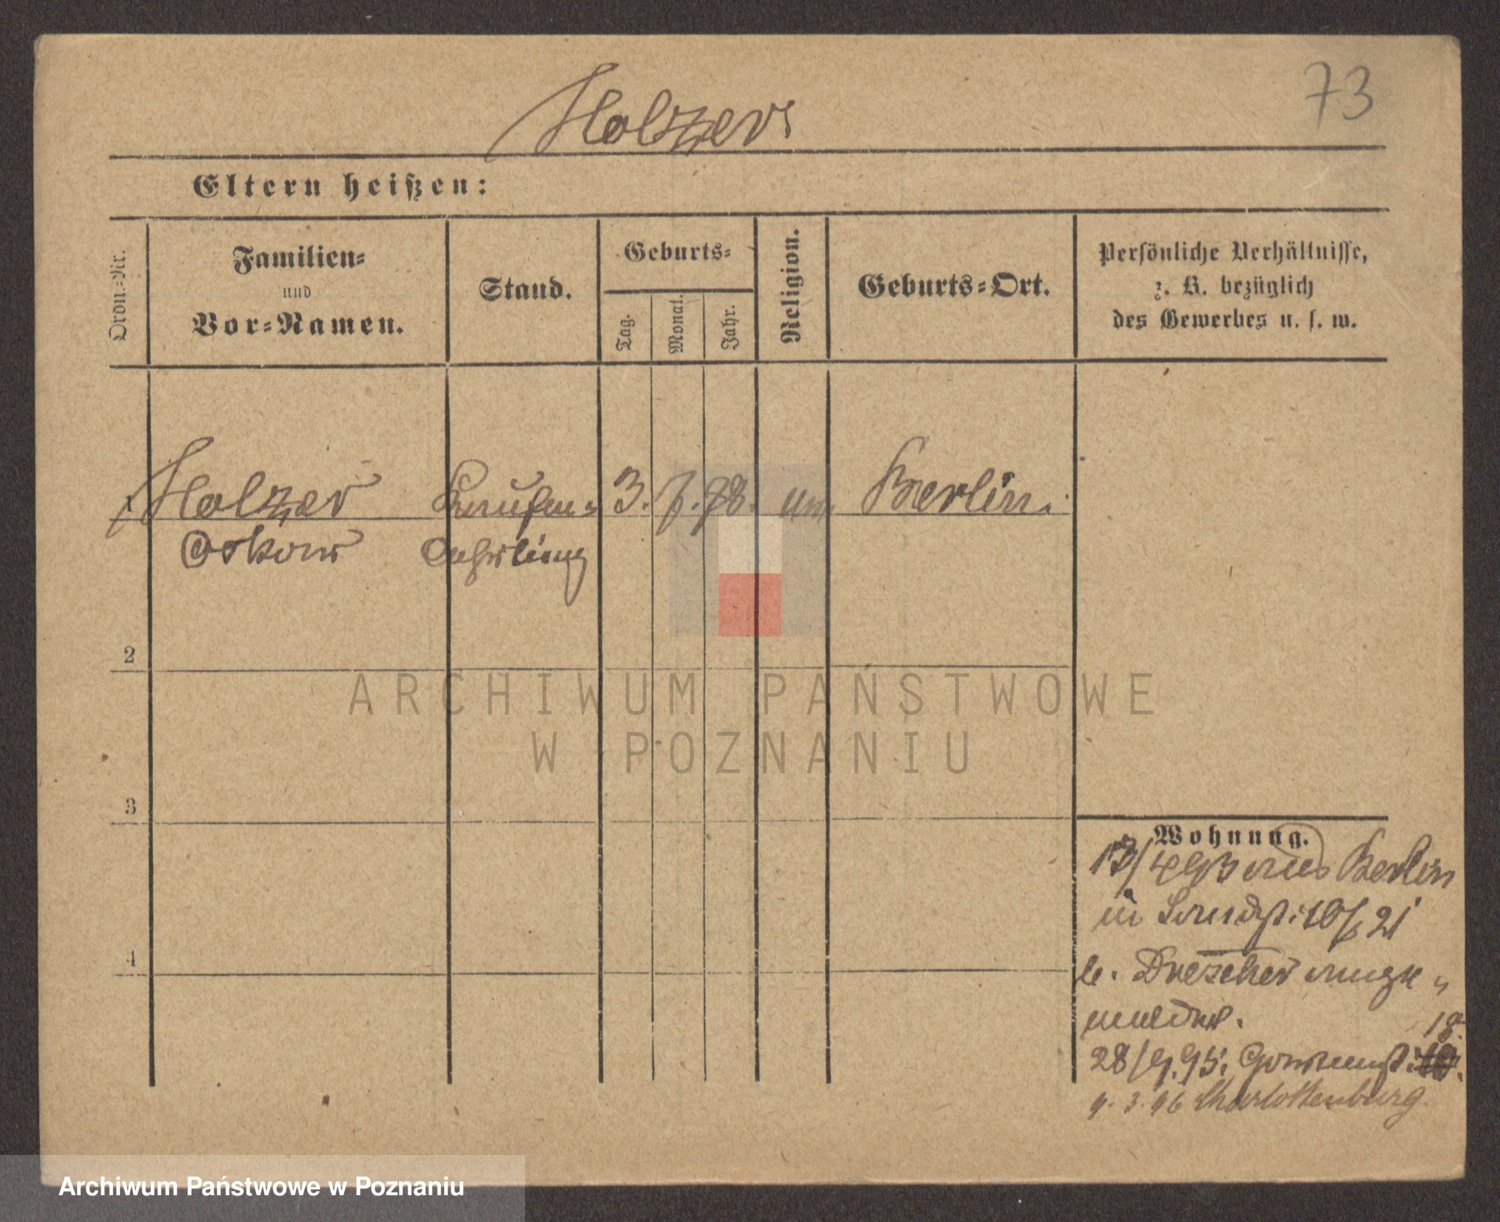 73
Holzer
Eltern heißen:
Ordn.-Nr.
Familien-
und
Vor-Namen.
Stand.
Geburts-
Tag.
Monat.
Jahr.
Religion.
Geburts-Ort.
Persönliche Verhältnisse,
z. B. bezüglich
des Gewerbes u. s. w.
1
Holzer
Kaufm.-
3. 7. 78.
Berlin.
Oskar
Lehrling
2
3
4
Wohnung.
13/4 93 aus Berlin
in 10/ 21
b. Drescher ange-
meldet.
18.
28/9. 95.
9. 3. 96 Charlottenburg.
ARCHIWUM PAŃSTWOWE
W POZNANIU
Archiwum Państwowe w Poznaniu